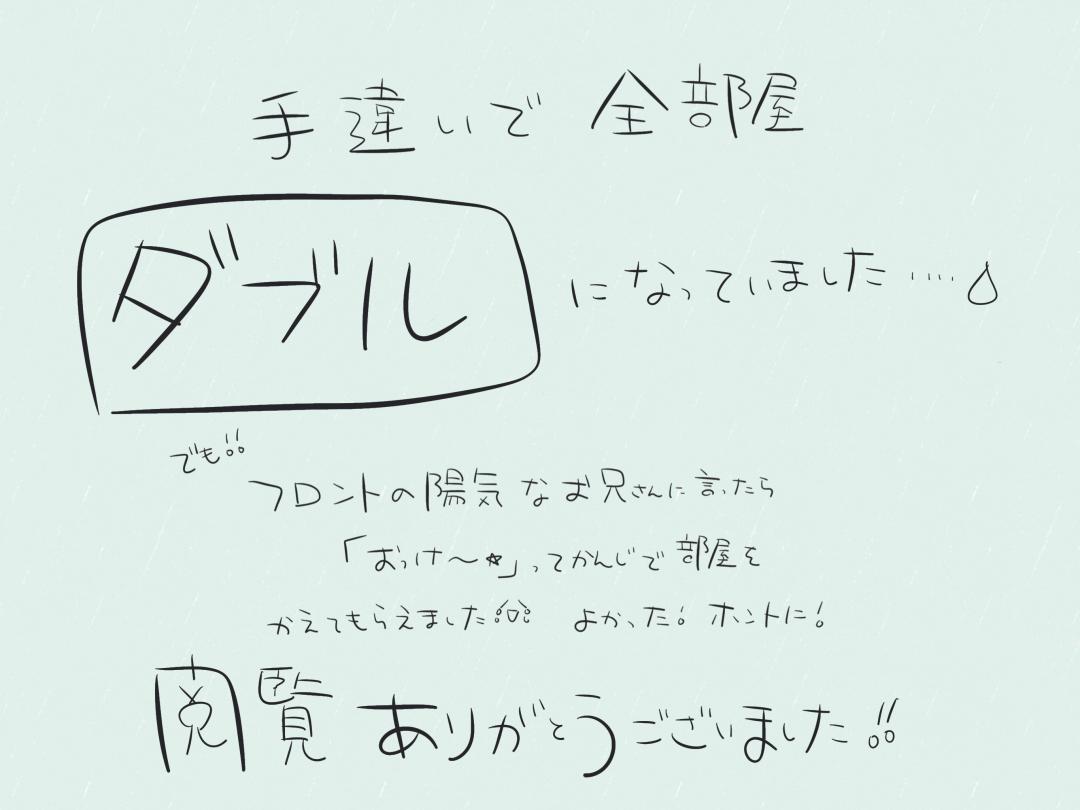 手違いで 全部屋
ダブル になっていました‥‥
でも!!
フロントの陽気なお兄さんに言ったら
「おっけ〜☆」ってかんじで部屋を
かえてもらえました よかった! ホントに!
閲覧ありがとうございました!!